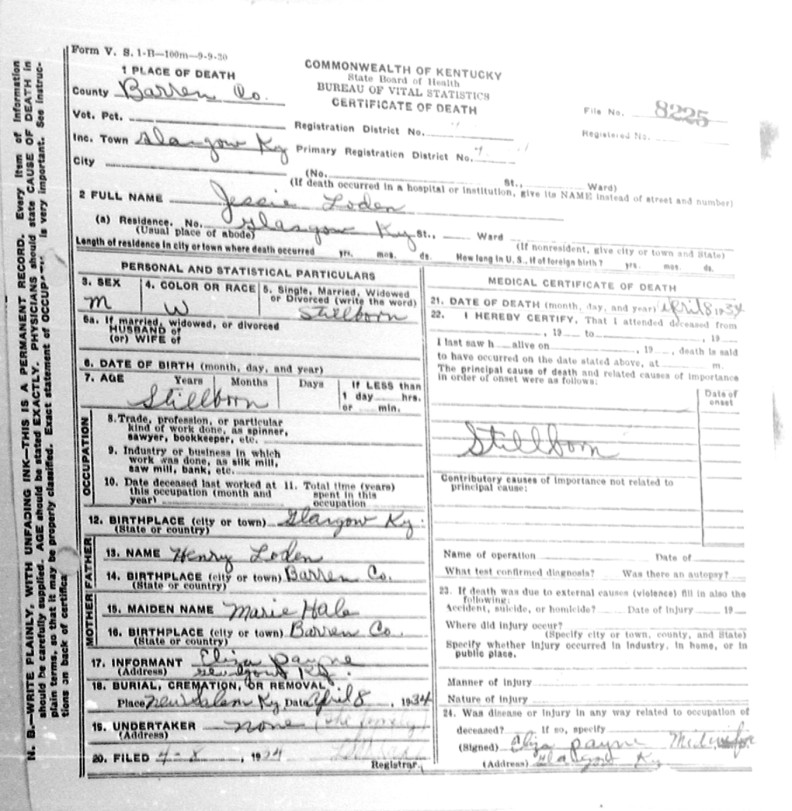 Form V. S. 1-B—100m—9-9-30
COMMONWEALTH OF KENTUCKY
State Board of Health
BUREAU OF VITAL STATISTICS
CERTIFICATE OF DEATH
File No. 8225
Registered No.
1 PLACE OF DEATH
County Barren Co.
Vot. Pct.
Registration District No.
Inc. Town Glasgow Ky Primary Registration District No.
City (No. St., Ward)
(If death occurred in a hospital or institution, give its NAME instead of street and number)
2 FULL NAME Jessie Loden
(a) Residence. No. Glasgow Ky St., Ward
(Usual place of abode) (If nonresident, give city or town and State)
Length of residence in city or town where death occurred yrs. mos. ds. How long in U. S., if of foreign birth? yrs. mos. ds.
PERSONAL AND STATISTICAL PARTICULARS
3. SEX 4. COLOR OR RACE 5. Single, Married, Widowed
or Divorced (write the word)
M W Stillborn
5a. If married, widowed, or divorced
HUSBAND of
(or) WIFE of
6. DATE OF BIRTH (month, day, and year)
7. AGE Years Months Days If LESS than
1 day hrs.
or min.
Stillborn
OCCUPATION
8. Trade, profession, or particular
kind of work done, as spinner,
sawyer, bookkeeper, etc.
9. Industry or business in which
work was done, as silk mill,
saw mill, bank, etc.
10. Date deceased last worked at 11. Total time (years)
this occupation (month and spent in this
year) occupation
12. BIRTHPLACE (city or town) Glasgow Ky.
(State or country)
FATHER
13. NAME Henry Loden
14. BIRTHPLACE (city or town) Barren Co.
(State or country)
MOTHER
15. MAIDEN NAME Marie Hale
16. BIRTHPLACE (city or town) Barren Co.
(State or country)
17. INFORMANT Eliza Payne
(Address) Glasgow Ky.
18. BURIAL, CREMATION, OR REMOVAL
Place New Salem Ky. Date April 8, 1934
19. UNDERTAKER none (the family)
(Address)
20. FILED 4-8, 1934
Registrar.
MEDICAL CERTIFICATE OF DEATH
21. DATE OF DEATH (month, day, and year) April 8 1934
22. I HEREBY CERTIFY, That I attended deceased from
, 19 to , 19
I last saw h alive on , 19 , death is said
to have occurred on the date stated above, at m.
The principal cause of death and related causes of importance
in order of onset were as follows:
Date of
onset
Stillborn
Contributory causes of importance not related to
principal cause:
Name of operation Date of
What test confirmed diagnosis? Was there an autopsy?
23. If death was due to external causes (violence) fill in also the
following:
Accident, suicide, or homicide? Date of injury 19
Where did injury occur?
(Specify city or town, county, and State)
Specify whether injury occurred in industry, in home, or in
public place.
Manner of injury
Nature of injury
24. Was disease or injury in any way related to occupation of
deceased? If so, specify
(Signed) Eliza Payne Midwife
(Address) Glasgow Ky
N. B.—WRITE PLAINLY, WITH UNFADING INK—THIS IS A PERMANENT RECORD. Every item of information
should be carefully supplied. AGE should be stated EXACTLY. PHYSICIANS should state CAUSE OF DEATH in
plain terms, so that it may be properly classified. Exact statement of OCCUP is very important. See instruc-
tions on back of certifica